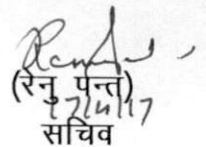 (रेनु पन्त)
17/11/17
सचिव